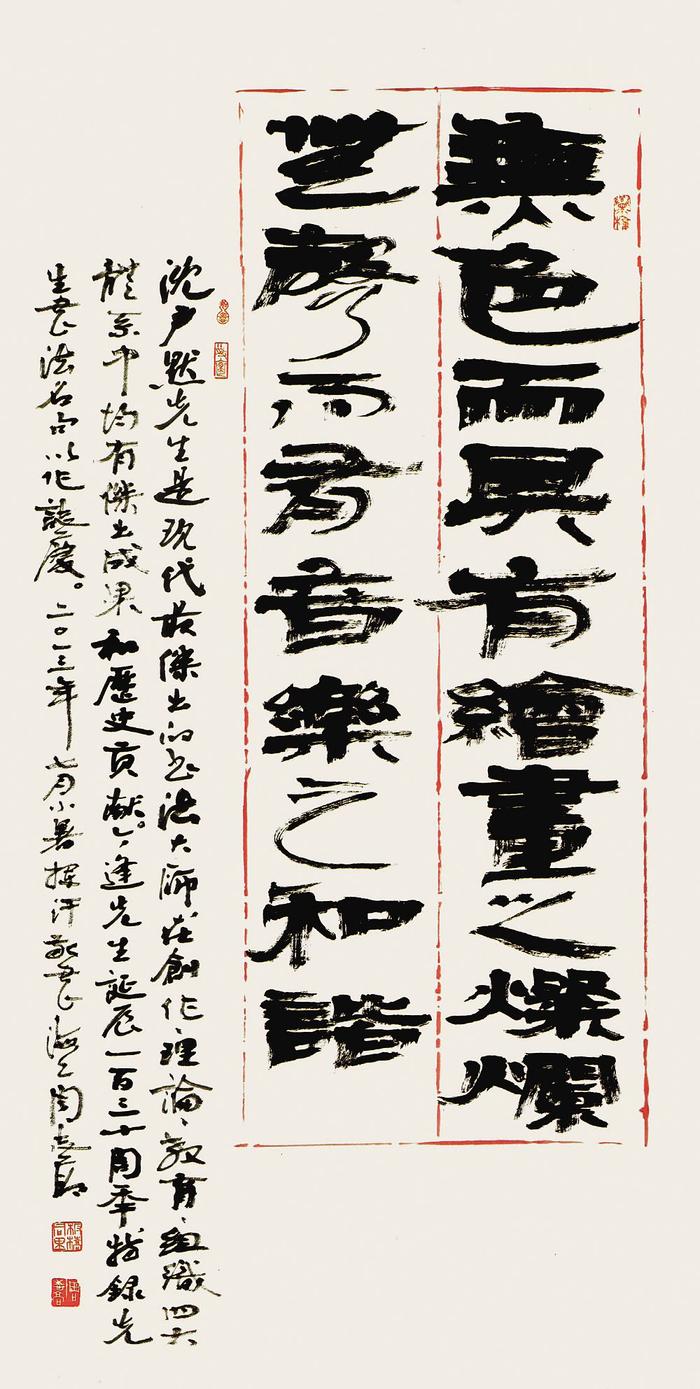 無色而具有繪畫之燦爛
無聲而有音樂之和諧
沈尹默先生是現代最傑出的書法大師在創作、理論、教育、組織四大
體系中均有傑出成果和歷史貢獻。今逢先生誕辰一百三十周年特錄先
生書法名句以作誌慶。二〇一三年七月小暑揮汗敬書於海上周志高